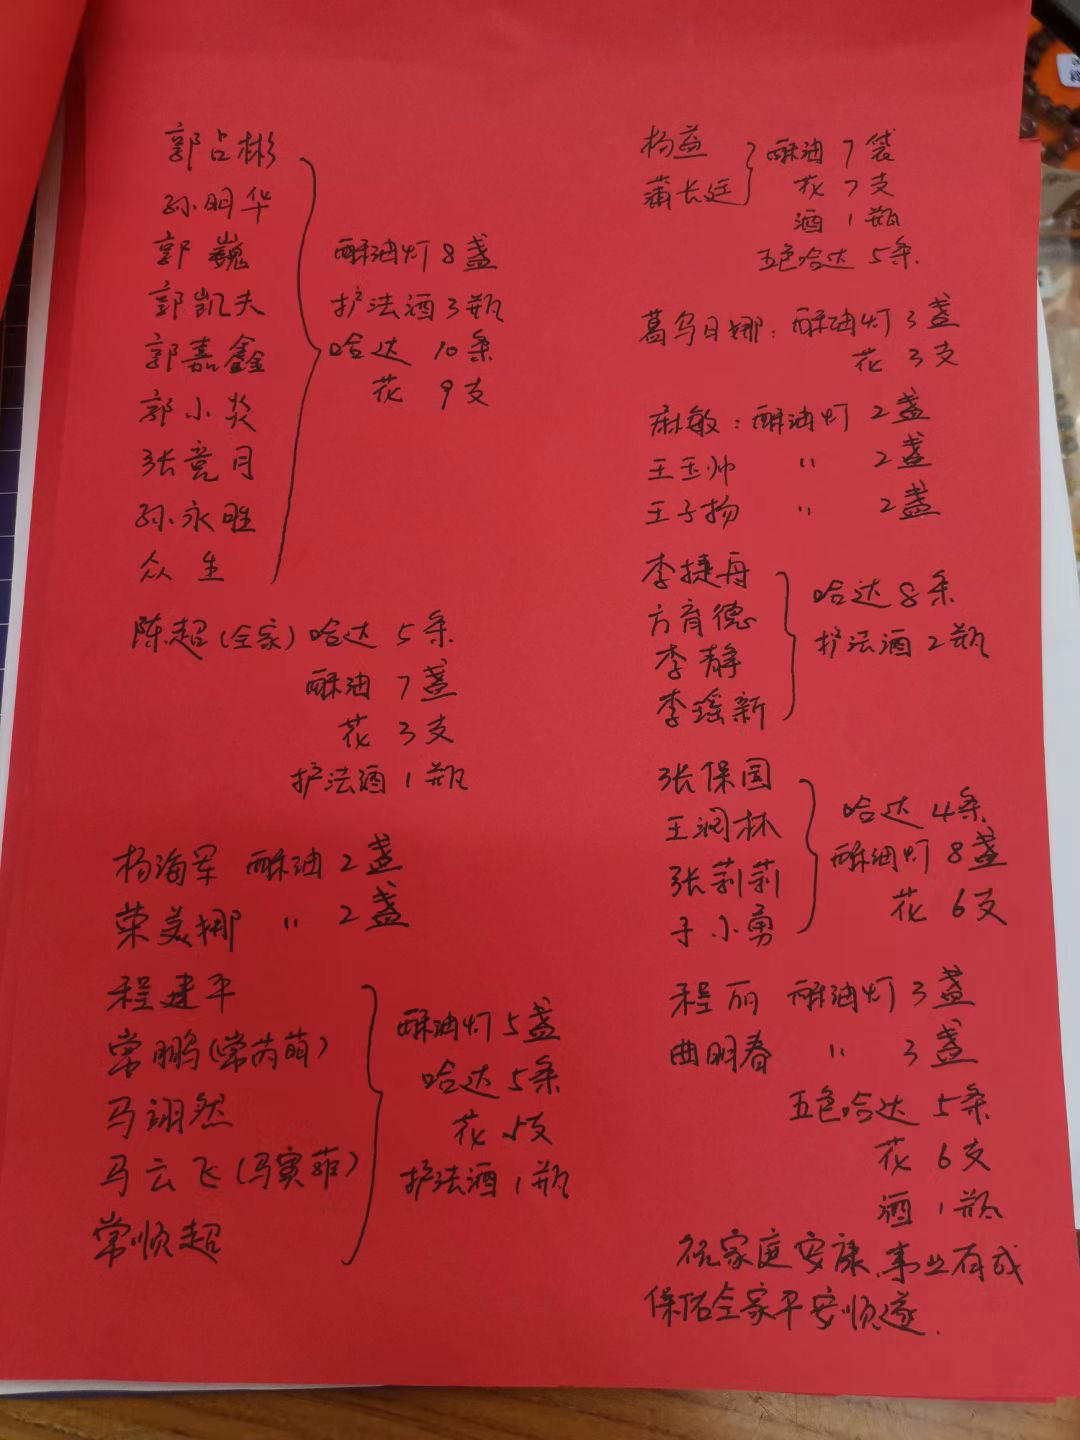 郭占彬
孙明华
郭巍
郭凯夫
郭嘉鑫
郭小炎
张竟月
孙永胜
众生
酥油灯8盏
护法酒3瓶
哈达10条
花9支
陈超(全家)哈达5条
酥油7盏
花3支
护法酒1瓶
杨海军 酥油2盏
荣美娜 〃 2盏
程建平
常鹏(常芮萌)
马翊然
马云飞(马寞菲)
常顺超
酥油灯5盏
哈达5条
花5支
护法酒1瓶
杨益
蒲长廷
酥油7袋
花7支
酒1瓶
五色哈达5条
葛乌日娜:酥油灯3盏
花3支
麻敏:酥油灯2盏
王玉帅 〃 2盏
王子扬 〃 2盏
李捷舟
方育德
李静
李瑶新
哈达8条
护法酒2瓶
张保国
王润林
张莉莉
于小勇
哈达4条
酥油灯8盏
花6支
程丽 酥油灯3盏
曲明春 〃 3盏
五色哈达5条
花6支
酒1瓶
祝家庭安康、事业有成
保佑全家平安顺遂.